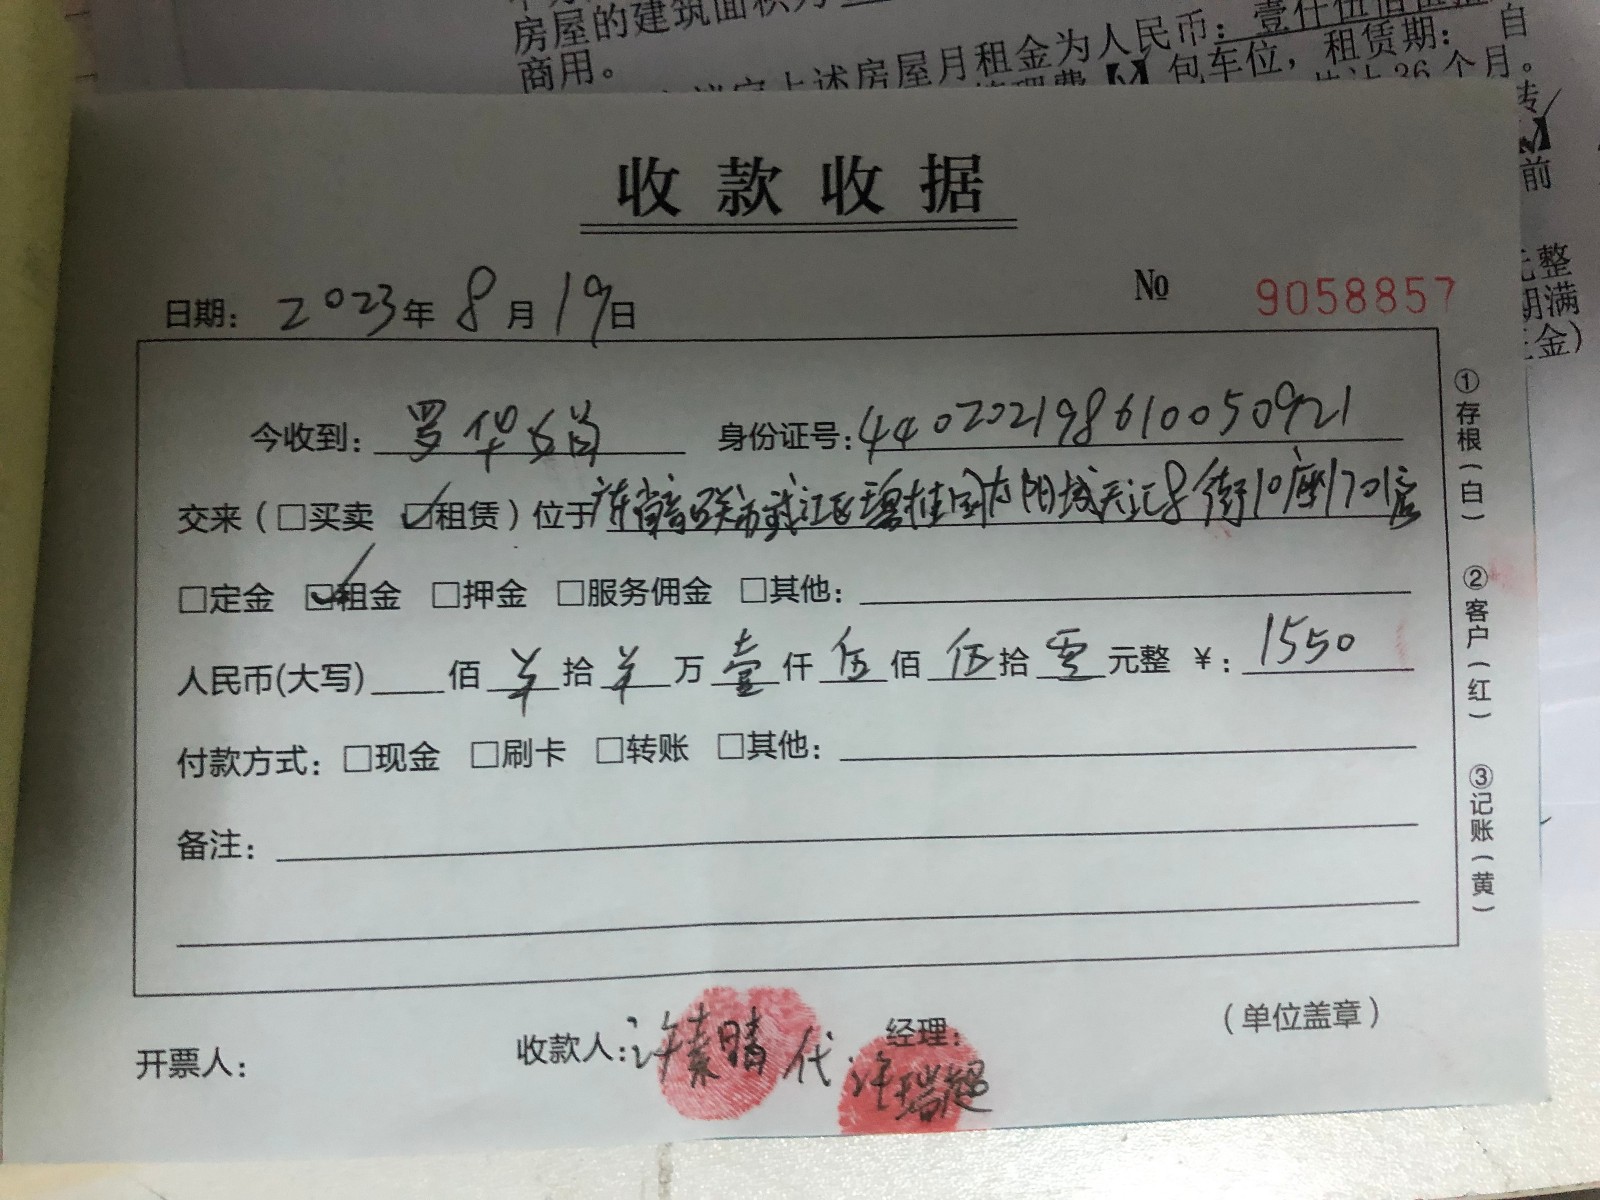 房屋的建筑面积为
壹仟伍佰伍拾
商用。
上述房屋月租金为人民币：
自
包车位，租赁期：
36个月。
转
前
整
期满
金）
收款收据
日期： 2023年 8月 19日
№ 9058857
今收到：罗华娟 身份证号：440202198610050921
交来（□买卖 ☑租赁）位于广东省韶关市武江区碧桂园太阳城天汇8街10座1701房
□定金 ☑租金 □押金 □服务佣金 □其他：
人民币(大写) 佰 羊 拾 羊 万 壹 仟 伍 佰 伍 拾 零 元整 ¥：1550
付款方式：□现金 □刷卡 □转账 □其他：
备注：
①存根（白）
②客户（红）
③记账（黄）
开票人：
收款人：许素晴 代 许瑞超
经理：
（单位盖章）